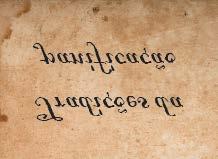 Tradições da
panificação